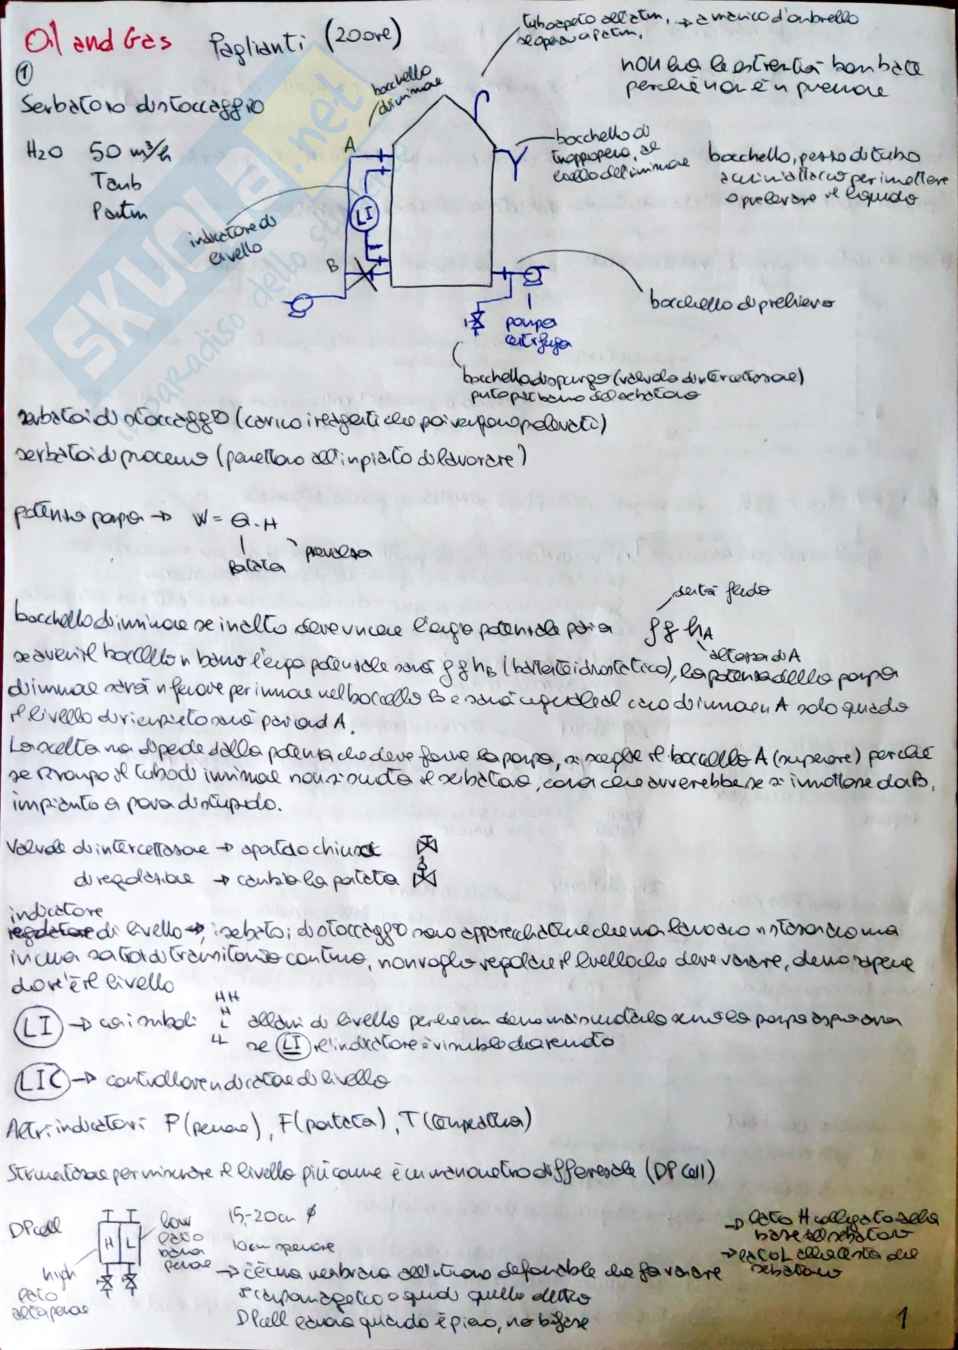 Oil and Gas Paglianti (20 ore)
tubo aperto all'atm, → a manico d'ombrello
se opera a patm,
non ha le estremità bombate
perché non è in pressione
①
Serbatoio di stoccaggio
bocchello
di immissione
H2O 50 m³/h
Tamb
Patm
A
bocchello di
troppopieno, al
livello dell'immissione
bocchello, pezzo di tubo
a cui mi allaccio per immettere
o prelevare il liquido
LI
indicatore di
livello
B
bocchello di prelievo
pompa
centrifuga
bocchello di spurgo (valvola di intercettazione)
punto più basso del serbatoio
serbatoi di stoccaggio (carico i reagenti che poi vengono prelevati)
serbatoi di processo (permettono all'impianto di lavorare)
potenza pompa → W = Q · H
portata prevalenza
densità fluido
bocchello di immissione se in alto deve vincere l'energia potenziale pari a ρ g hA
altezza di A
se avessi il bocchello in basso l'energia potenziale sarà ρ g hB (battente idrostatico), la potenza della pompa
di immissione sarà inferiore per immissione nel bocchello B e sarà uguale al caso di immissione in A solo quando
il livello di riempimento sarà pari ad A.
La scelta non dipende dalla potenza che deve fornire la pompa, si sceglie il bocchello A (superiore) perché
se si rompe il tubo di immissione non si svuota il serbatoio, cosa che avverrebbe se si immettesse da B,
impianto a prova di stupido.
Valvole di intercettazione → aperta o chiusa
di regolazione → cambia la portata
indicatore
regolatore di livello →, i serbatoi di stoccaggio sono apparecchiature che non lavorano in stazionario ma
in una sorta di transitorio continuo, non voglio regolare il livello che deve variare, devo sapere
dov'è il livello
LI → con i simboli HH H L LL allarmi di livello perché non devo mai svuotarlo senno la pompa aspira aria
se LI l'indicatore è visibile da remoto
LIC → controllore indicatore di livello
Altri indicatori P (pressione), F (portata), T (temperatura)
Strumentazione per misurare il livello più comune è un manometro differenziale (DP cell)
DP cell
H L
low
lato
bassa
pressione
high
lato
alta pressione
15,-20cm ϕ
10cm spessore
→ c'è una membrana all'interno deformabile che fa variare
il campo magnetico e quindi quello elettrico
DP cell lavora quando è pieno, no bifase
→ lato H collegato alla
base del serbatoio
→ lato L alla testa del
serbatoio
1
SKUOLA.net
il paradiso dello studente